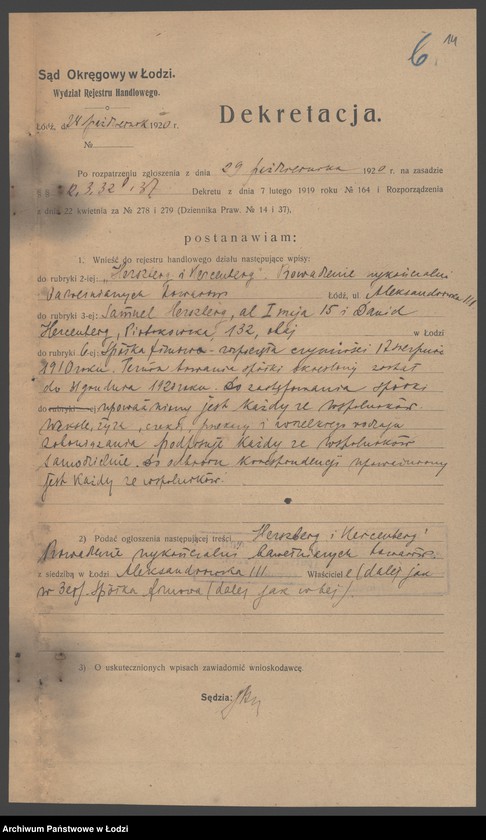 6
14
Sąd Okręgowy w Łodzi.
Wydział Rejestru Handlowego.
Łódź, d. 24 październik 1920 r.
№
Dekretacja.
Po rozpatrzeniu zgłoszenia z dnia 29 października 1920 r. na zasadzie
2, 3, 32 i 37 Dekretu z dnia 7 lutego 1919 roku № 164 i Rozporządzenia
z dnia 22 kwietnia za № 278 i 279 (Dziennika Praw. № 14 i 37),
postanawiam:
1. Wnieść do rejestru handlowego działu następujące wpisy:
do rubryki 2-iej: „Herszberg i Hercenberg". Prowadzenie wykończalni
bawełnianych towarów Łódź, ul Aleksandrowska 111
do rubryki 3-ej: Samuel Herszberg, al I maja 15 i Dawid
Hercenberg, Piotrkowska 132, obaj w Łodzi
do rubryki 6ej Spółka firmowa rozpoczęła czynności 17 sierpnia
1910 roku. Termin trwania spółki określony został
do 31 grudnia 1920 roku. Do zastępowania spółki
do rubryki -ej upoważniony jest każdy ze wspólników.
Weksle, żyra, czeki, i wszelkiego rodzaju
zobowiązania podpisuje każdy ze wspólników
samodzielnie. Do odbioru korespondencji upoważniony
jest każdy ze wspólników.
2) Podać ogłoszenia następującej treści „Herszberg i Hercenberg"
Prowadzenie wykończalni bawełnianych towarów,
z siedzibą w Łodzi Aleksandrowska 111 Właściciele (dalej jak
w 3ej). Spółka firmowa (dalej jak w 6ej).
3) O uskutecznionych wpisach zawiadomić wnioskodawcę.
Sędzia:
Archiwum Państwowe w Łodzi